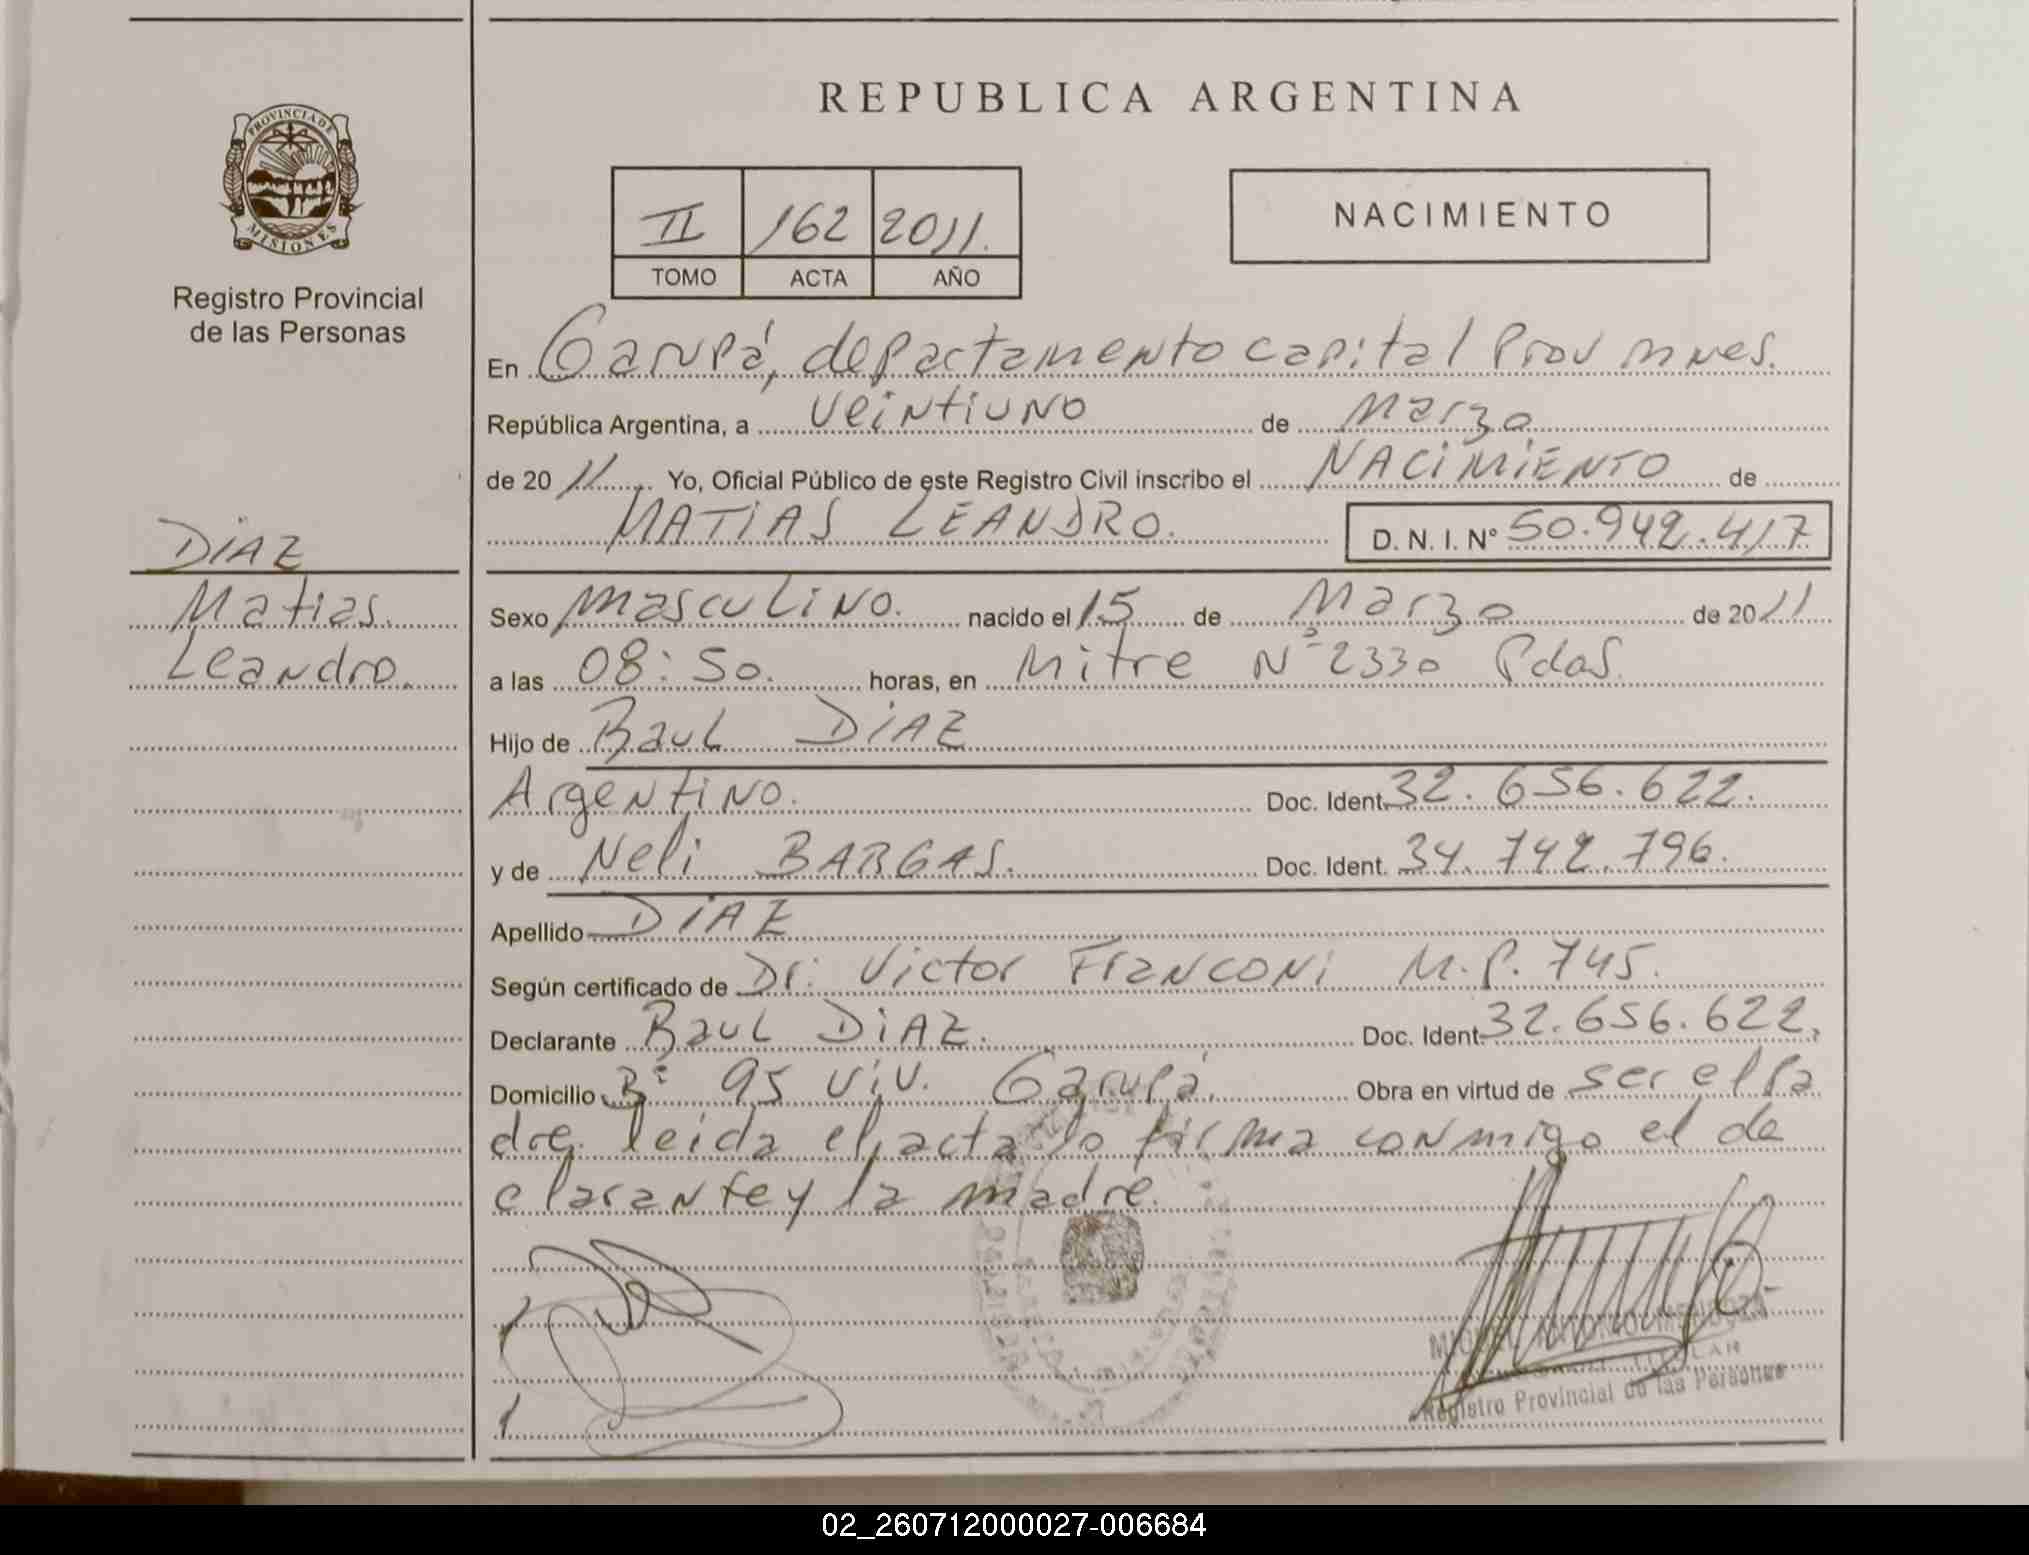 PROVINCIA DE
MISIONES
Registro Provincial
de las Personas
DIAZ
Matias
Leandro.
REPUBLICA ARGENTINA
II 162 2011.
TOMO ACTA AÑO
NACIMIENTO
En Garupá, departamento capital Prov mnes.
República Argentina, a veintiuno de Marzo
de 2011 Yo, Oficial Público de este Registro Civil inscribo el NACIMIENTO de
MATIAS LEANDRO. D. N. I. N° 50.942.417
Sexo masculino. nacido el 15 de Marzo de 2011
a las 08:50. horas, en Mitre N° 2330 Pdas.
Hijo de Raul DIAZ
Argentino. Doc. Ident. 32.656.622.
y de Neli BARGAS. Doc. Ident. 34.742.796.
Apellido DIAZ
Según certificado de Dr: Victor Franconi M.P. 745.
Declarante Raul DIAZ. Doc. Ident. 32.656.622.
Domicilio B° 95 viv. Garupá. Obra en virtud de ser el pa
dre. leida el acta lo firma conmigo el de
clarante y la madre.
TITULAR
Registro Provincial de las Personas
02_260712000027-006684